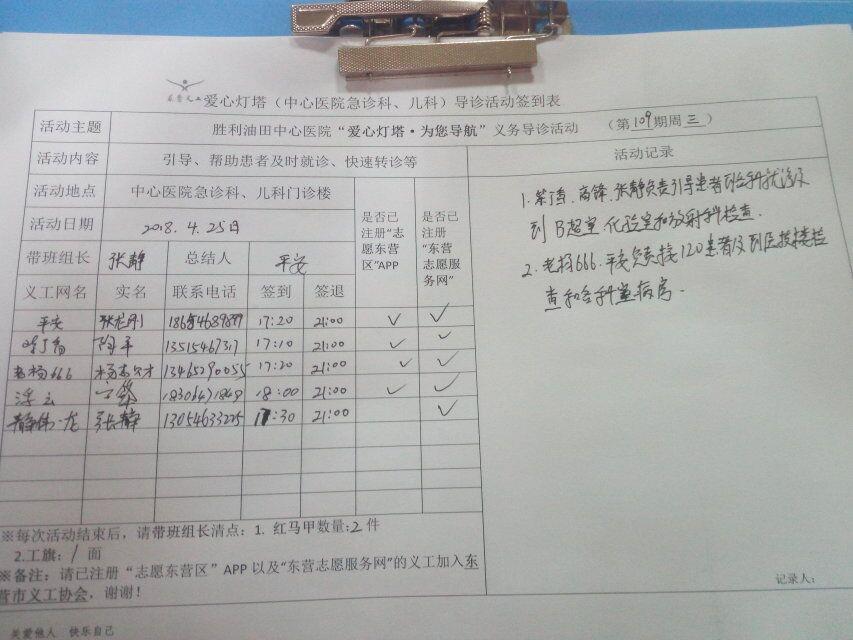 爱心灯塔（中心医院急诊科、儿科）导诊活动签到表
活动主题 胜利油田中心医院“爱心灯塔·为您导航”义务导诊活动 （第109期周三）
活动内容 引导、帮助患者及时就诊、快速转诊等 活动记录
活动地点 中心医院急诊科、儿科门诊楼
活动日期 2018.4.25日
是否已注册“志愿东营区”APP
是否已注册“东营志愿服务网”
带班组长 张静 总结人 平安
义工网名 实名 联系电话 签到 签退
平安 17:20 21:00 ✓ ✓
13515467317 17:10 21:00 ✓ ✓
老杨666 13465290055 17:20 21:00 ✓ ✓
浮云 18:00 21:00 ✓ ✓
张静 13054633225 17:30 21:00 ✓
张静负责引导患者到各科就诊及
到B超室化验室和放射科检查.
2.老杨666.平安负责接120患者及到医技楼检
查和各科室病房.
※每次活动结束后，请带班组长清点：1. 红马甲数量:2件
2.工旗：/ 面
※备注：请已注册“志愿东营区”APP以及“东营志愿服务网”的义工加入东
营市义工协会，谢谢！
记录人：
关爱他人 快乐自己